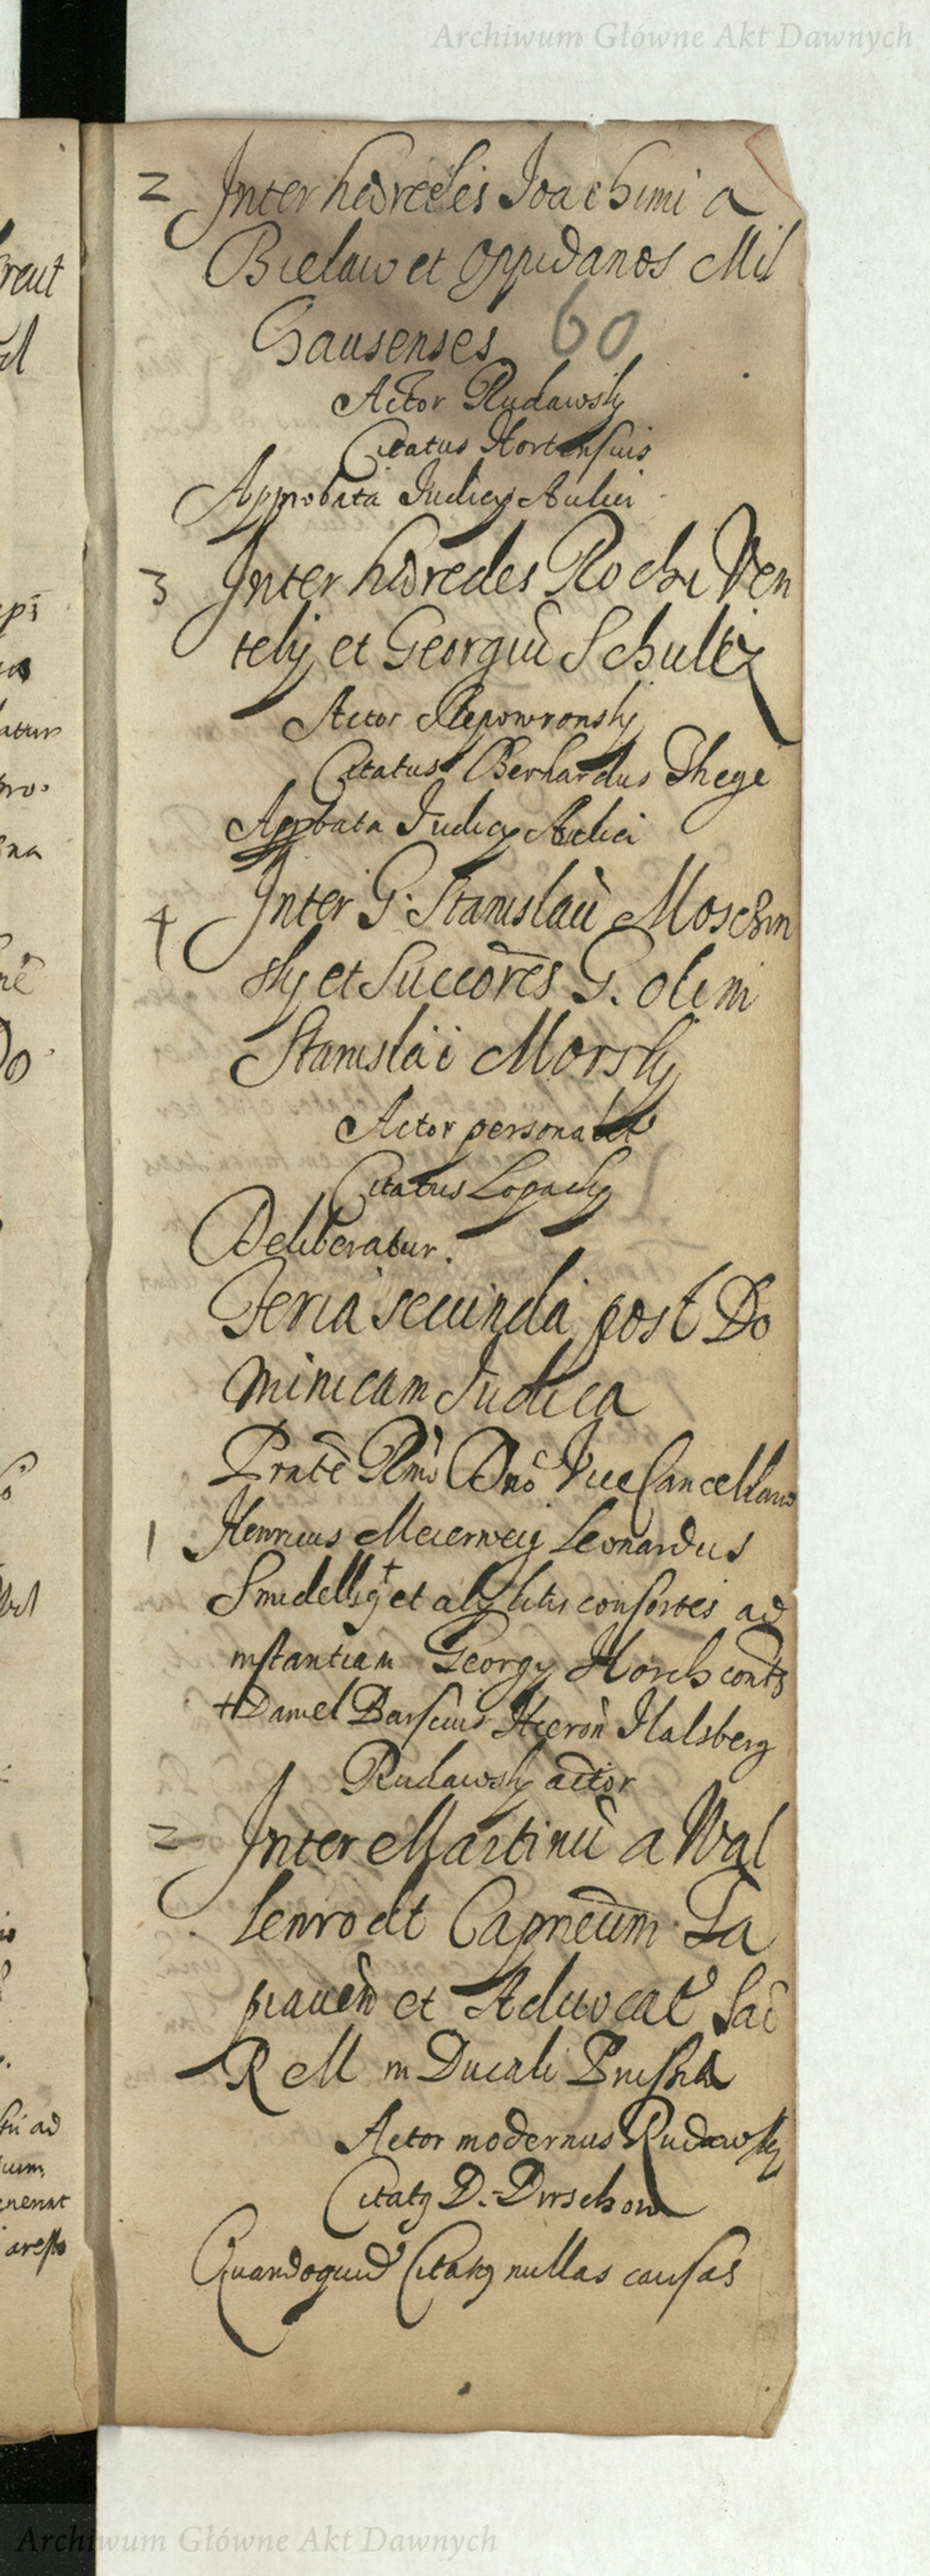 Archiwum Główne Akt Dawnych
2 Inter hæredes Joachimi a
Bielaw et oppidanos Mil
hausenses 60
Actor Rudawsky
Citatus Hortensius
Approbata Judicij Aulici
3 Inter hæredes Rochi Ven
telij et Georgiũ Schultz
Actor Slepowronsky
Citatus Berhardus Thege
Appbata Judicij Aulici
4 Inter G. Stanislaũ Moschin
sky et Succõres G. olim
Stanislai Morsky
Actor personalit
Citatus Lopacky
Deliberatur.
Feria secunda post Do
minicam Judica
Pratẽ Rmõ Dnõ ViceCancellario
1 Henricus Meierweig Leonardus
et alij litis consortes ad
instantiam Georgij Horch
+ Daniel Barscius Hieron Halsberg
Rudawsky actor
2 Inter Martinũ a Wal
lenrodt Capneum Ta
piauẽn et Aduocat Sac
R M in Ducali Prussia
Actor modernus Rudawsky
Citatq D. Dirschow
Quandoquid Citatq nullas causas
Archiwum Główne Akt Dawnych